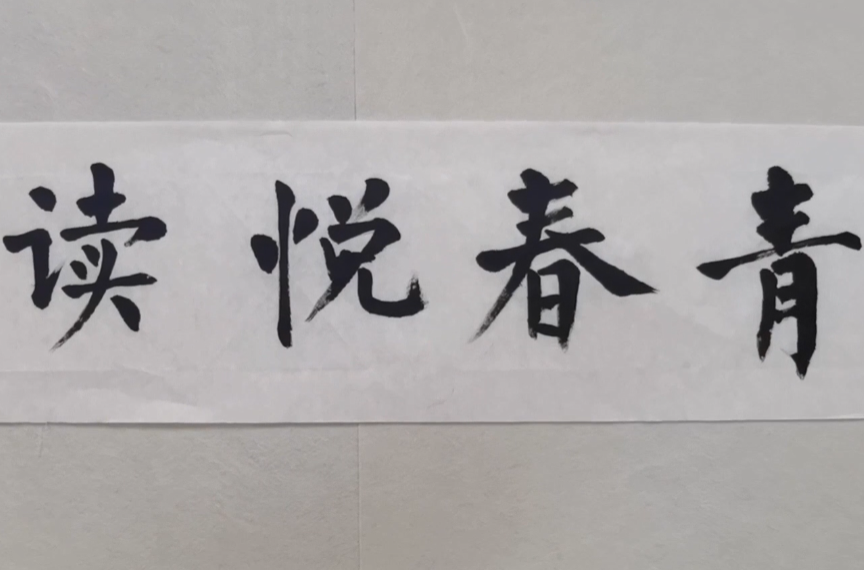 青春悦读